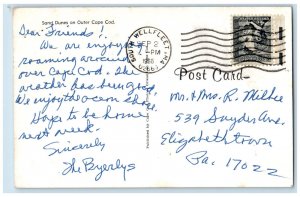 Sand Dunes on Outer Cape Cod.
Dear Friends!
We are enjoying
roaming around
over Cape Cod. The
weather has been good.
We enjoy the ocean shore.
Hope to be home
next week.
Sincerely
The Byerlys
SOUTH WELLFLEET, MA
SEP 2
PM
02663
Post Card
Mr. & Mrs. R.
539 Snyder Ave.
Elizabethtown
Pa. 17022